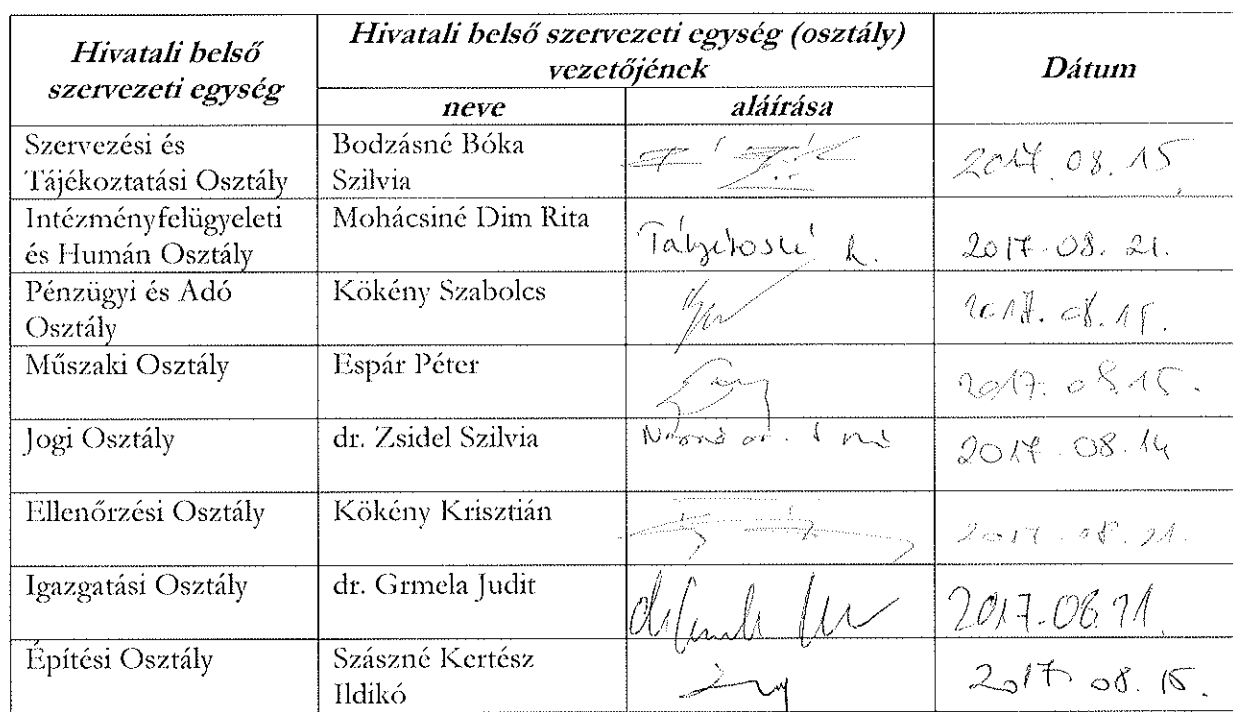 Hivatali belső szervezeti egység
Hivatali belső szervezeti egység (osztály) vezetőjének
Dátum
neve
aláírása
Szervezési és
Tájékoztatási Osztály
Bodzásné Bóka
Szilvia
2017. 08. 15.
Intézményfelügyeleti
és Humán Osztály
Mohácsiné Dim Rita
2017. 08. 21.
Pénzügyi és Adó
Osztály
Kökény Szabolcs
2017. 08. 15.
Műszaki Osztály
Espár Péter
2017. 08. 15.
Jogi Osztály
dr. Zsidel Szilvia
2017. 08. 14
Ellenőrzési Osztály
Kökény Krisztián
2017. 08. 21.
Igazgatási Osztály
dr. Grmela Judit
2017. 08. 21.
Építési Osztály
Szászné Kertész
Ildikó
2017 08. 15.